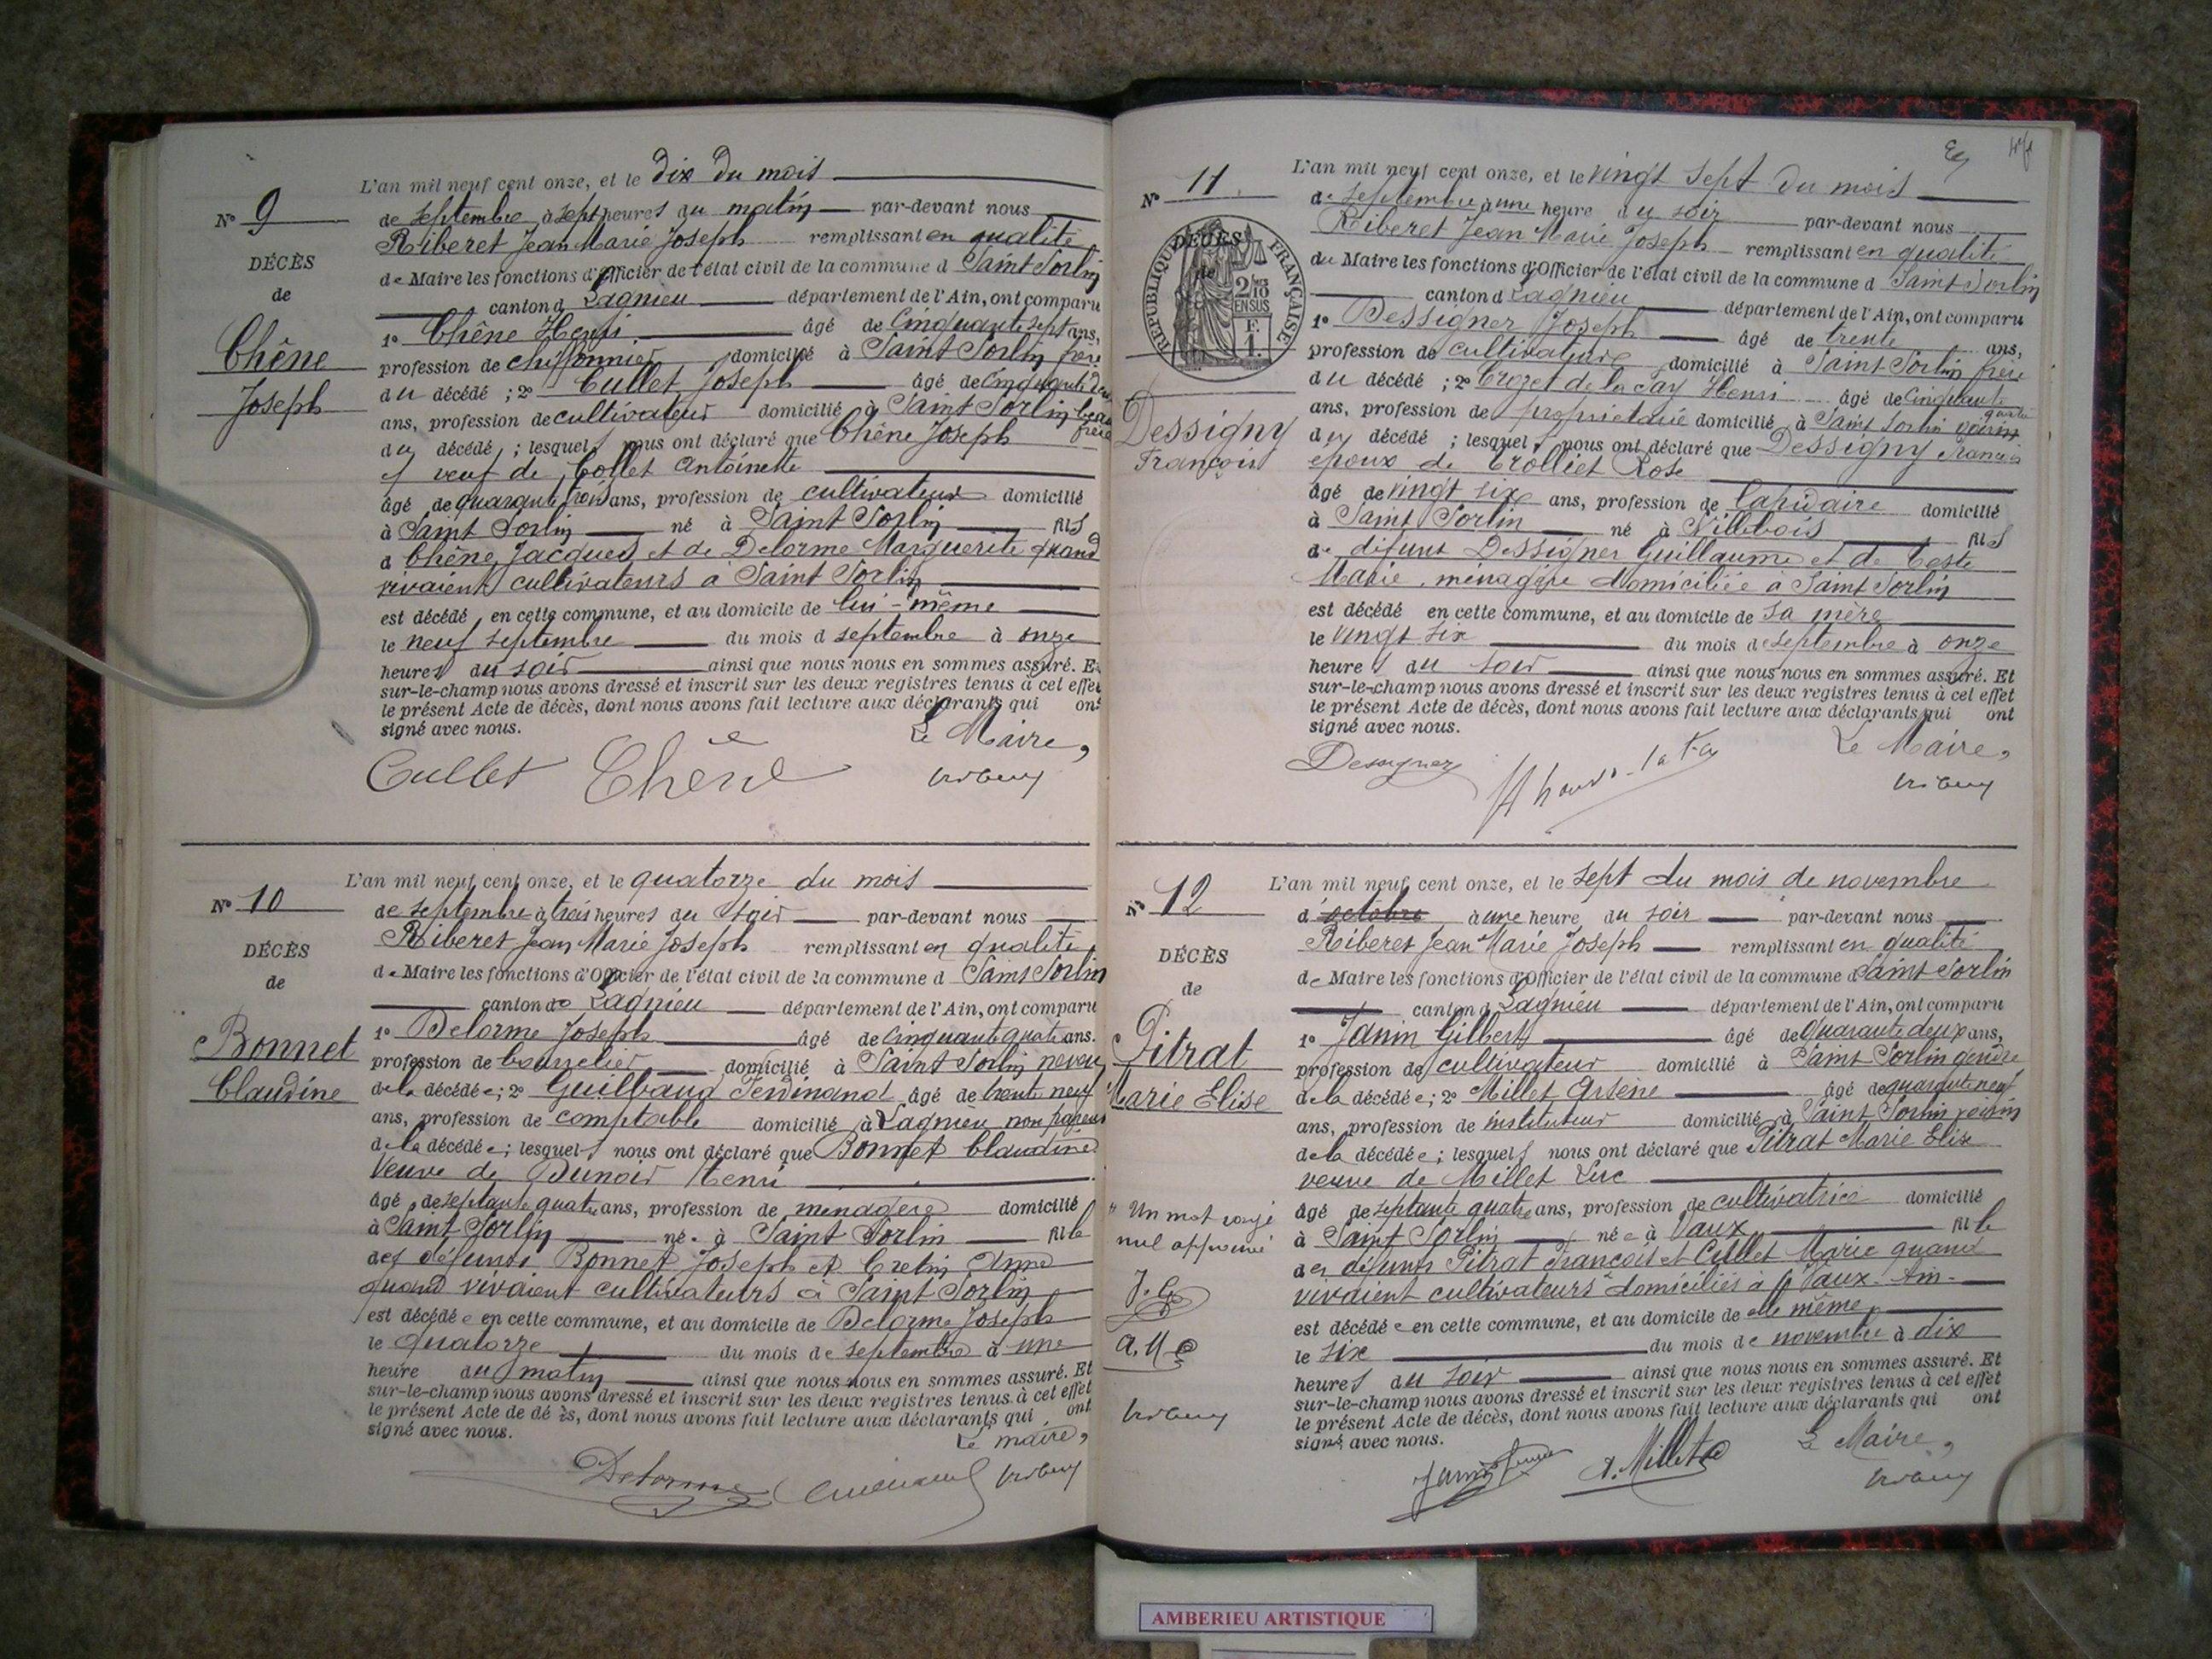 L'an mil neuf cent onze, et le dix du mois
N° 9
de septembre à sept heures du matin par-devant nous
Riberet Jean Marie Joseph remplissant en qualité
DÉCÈS
de Maire les fonctions d'Officier de l'état civil de la commune d Saint Sorlin
de
canton d Lagnieu département de l'Ain, ont comparu
1° Chêne Henri âgé de Cinquante sept ans,
Chêne
profession de chiffonnier domicilié à Saint Sorlin frère
Joseph
du décédé ; 2° Cullet Joseph âgé de Cinquante
ans, profession de cultivateur domicilié à Saint Sorlin beau
frère
du décédé ; lesquels nous ont déclaré que Chêne Joseph
veuf de Collet Antoinette
âgé de quarante trois ans, profession de cultivateur domicilié
à Saint Sorlin né à Saint Sorlin fils
d Chêne Jacques et de Delorme Marguerite quand
vivaient cultivateurs à Saint Sorlin
est décédé en cette commune, et au domicile de lui-même
le neuf septembre du mois d septembre à onze
heures du soir ainsi que nous nous en sommes assuré. Et
sur-le-champ nous avons dressé et inscrit sur les deux registres tenus à cet effet
le présent Acte de décès, dont nous avons fait lecture aux déclarants qui ont
signé avec nous.
Le Maire,
Cullet Chêne
L'an mil neuf cent onze, et le quatorze du mois
N° 10
de septembre à trois heures du soir par-devant nous
Riberet Jean Marie Joseph remplissant en qualité
DÉCÈS
de Maire les fonctions d'Officier de l'état civil de la commune d Saint Sorlin
de
canton de Lagnieu département de l'Ain, ont comparu
1° Delorme Joseph âgé de Cinquante quatre ans.
Bonnet
profession de bourrelier domicilié à Saint Sorlin neveu
Claudine
de la décédée ; 2° Guilbaud Ferdinand âgé de trente neuf
ans, profession de comptable domicilié à Lagnieu non parent
de la décédée ; lesquels nous ont déclaré que Bonnet Claudine
Veuve de Dunoir Henri
âgé de septante quatre ans, profession de ménagère domicilié
à Saint Sorlin née à Saint Sorlin fille
des défunts Bonnet Joseph et Cretin Anne
quand vivaient cultivateurs à Saint Sorlin
est décédée en cette commune, et au domicile de Delorme Joseph
le quatorze du mois de septembre à une
heure du matin ainsi que nous nous en sommes assuré. Et
sur-le-champ nous avons dressé et inscrit sur les deux registres tenus à cet effet
le présent Acte de dé ès, dont nous avons fait lecture aux déclarants qui ont
signé avec nous.
Le maire,
Delorme
L'an mil neuf cent onze, et le vingt sept du mois
N° 11
de septembre à une heure du soir par-devant nous
Riberet Jean Marie Joseph remplissant en qualité
DÉCÈS
de
RÉPUBLIQUE FRANÇAISE
2/10 EN SUS
F. 1.
du Maire les fonctions d'Officier de l'état civil de la commune d Saint Sorlin
canton d Lagnieu département de l'Ain, ont comparu
1° Dessigner Joseph âgé de trente ans,
profession de cultivateur domicilié à Saint Sorlin frère
du décédé ; 2° Crozet de la Fay Henri âgé de Cinquante
quatre
ans, profession de propriétaire domicilié à Saint Sorlin voisin
Dessigny
François
du décédé ; lesquels nous ont déclaré que Dessigny François
époux de Trolliet Rose
âgé de vingt six ans, profession de lapidaire domicilié
à Saint Sorlin né à Villebois fils
de défunt Dessigner Guillaume et de Teste
Marie, ménagère domiciliée à Saint Sorlin
est décédé en cette commune, et au domicile de sa mère
le vingt six du mois de septembre à onze
heures du soir ainsi que nous nous en sommes assuré. Et
sur-le-champ nous avons dressé et inscrit sur les deux registres tenus à cet effet
le présent Acte de décès, dont nous avons fait lecture aux déclarants qui ont
signé avec nous.
Le Maire,
Dessigner
L'an mil neuf cent onze, et le sept du mois de novembre
N° 12
d'octobre à une heure du soir par-devant nous
Riberet Jean Marie Joseph remplissant en qualité
DÉCÈS
de Maire les fonctions d'Officier de l'état civil de la commune d Saint Sorlin
de
canton d Lagnieu département de l'Ain, ont comparu
1° Janin Gilbert âgé de quarante deux ans,
Pitrat
profession de cultivateur domicilié à Saint Sorlin gendre
Marie Elise
de la décédée ; 2° Millet Arsène âgé de quarante neuf
ans, profession de instituteur domicilié à Saint Sorlin voisin
de la décédée ; lesquels nous ont déclaré que Pitrat Marie Elise
veuve de Millet Luc
âgé de septante quatre ans, profession de cultivatrice domicilié
Un mot rayé
nul approuvé
à Saint Sorlin née à Vaux fille
des défunts Pitrat François et Cullet Marie quand
vivaient cultivateurs domiciliés à Vaux-Ain-
J. G
est décédée en cette commune, et au domicile de elle même
le six du mois de novembre à dix
A. M
heures du soir ainsi que nous nous en sommes assuré. Et
sur-le-champ nous avons dressé et inscrit sur les deux registres tenus à cet effet
le présent Acte de décès, dont nous avons fait lecture aux déclarants qui ont
signé avec nous.
Le Maire,
Janin A. Millet
AMBERIEU ARTISTIQUE